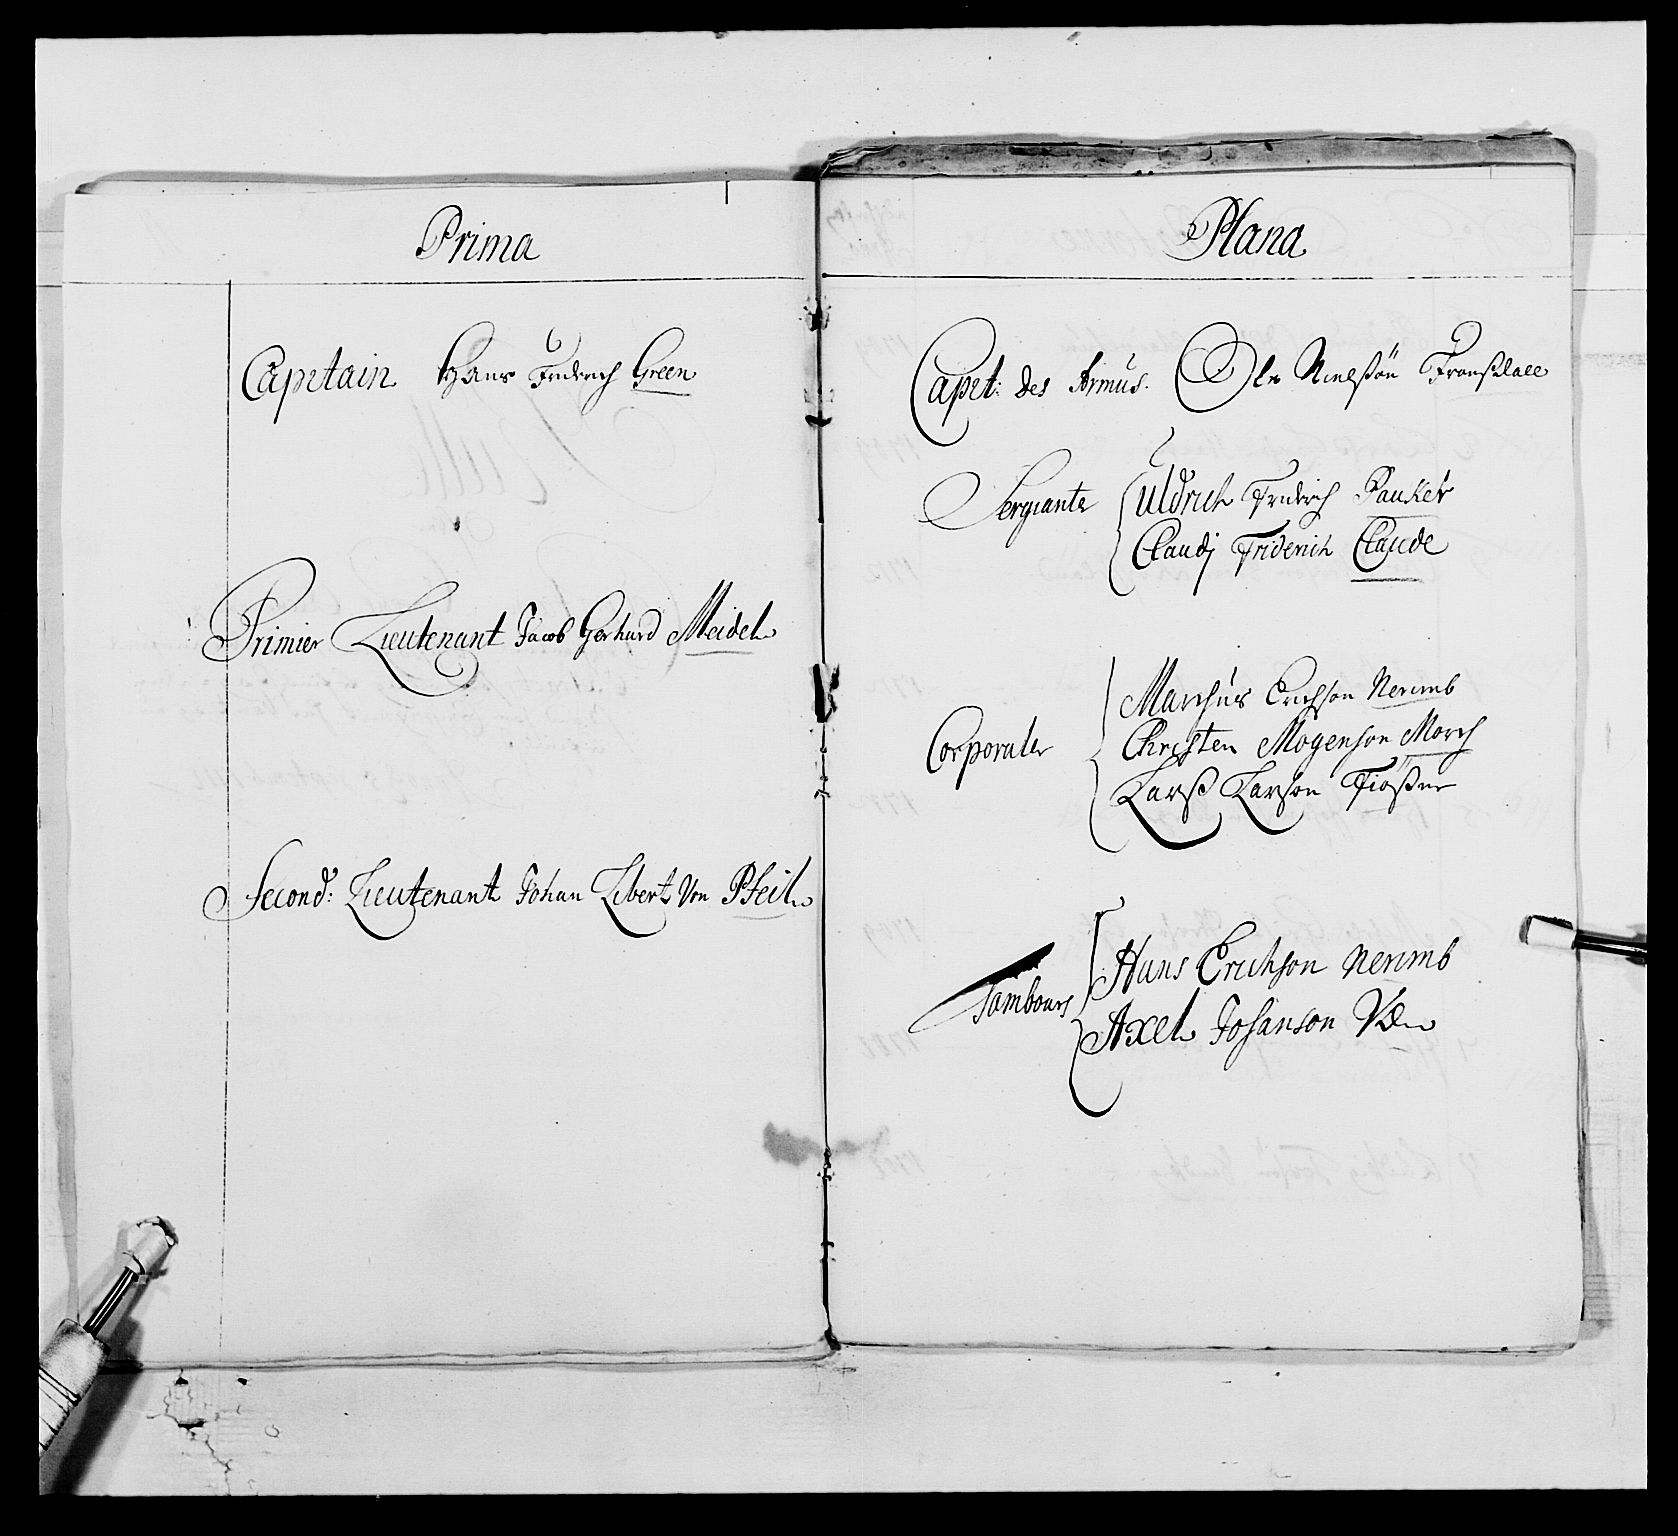 Prima
Captain Hans Friderich Green
Primier Lieutenant Jacob Gerhard Meidel
Second: Lieutenant Johan Libert Von Pfeil
Plana
Capit: des Armus. Ole Nielßön
Sergianter Uldrich Friderich Pauker
Claudj Friderich Claude
Corporaler Marchus Erichson Nerimb
Christen Mogenson Morch
Larß Larson
Tambours Hans Erichson Nerimb
Axel Johanson